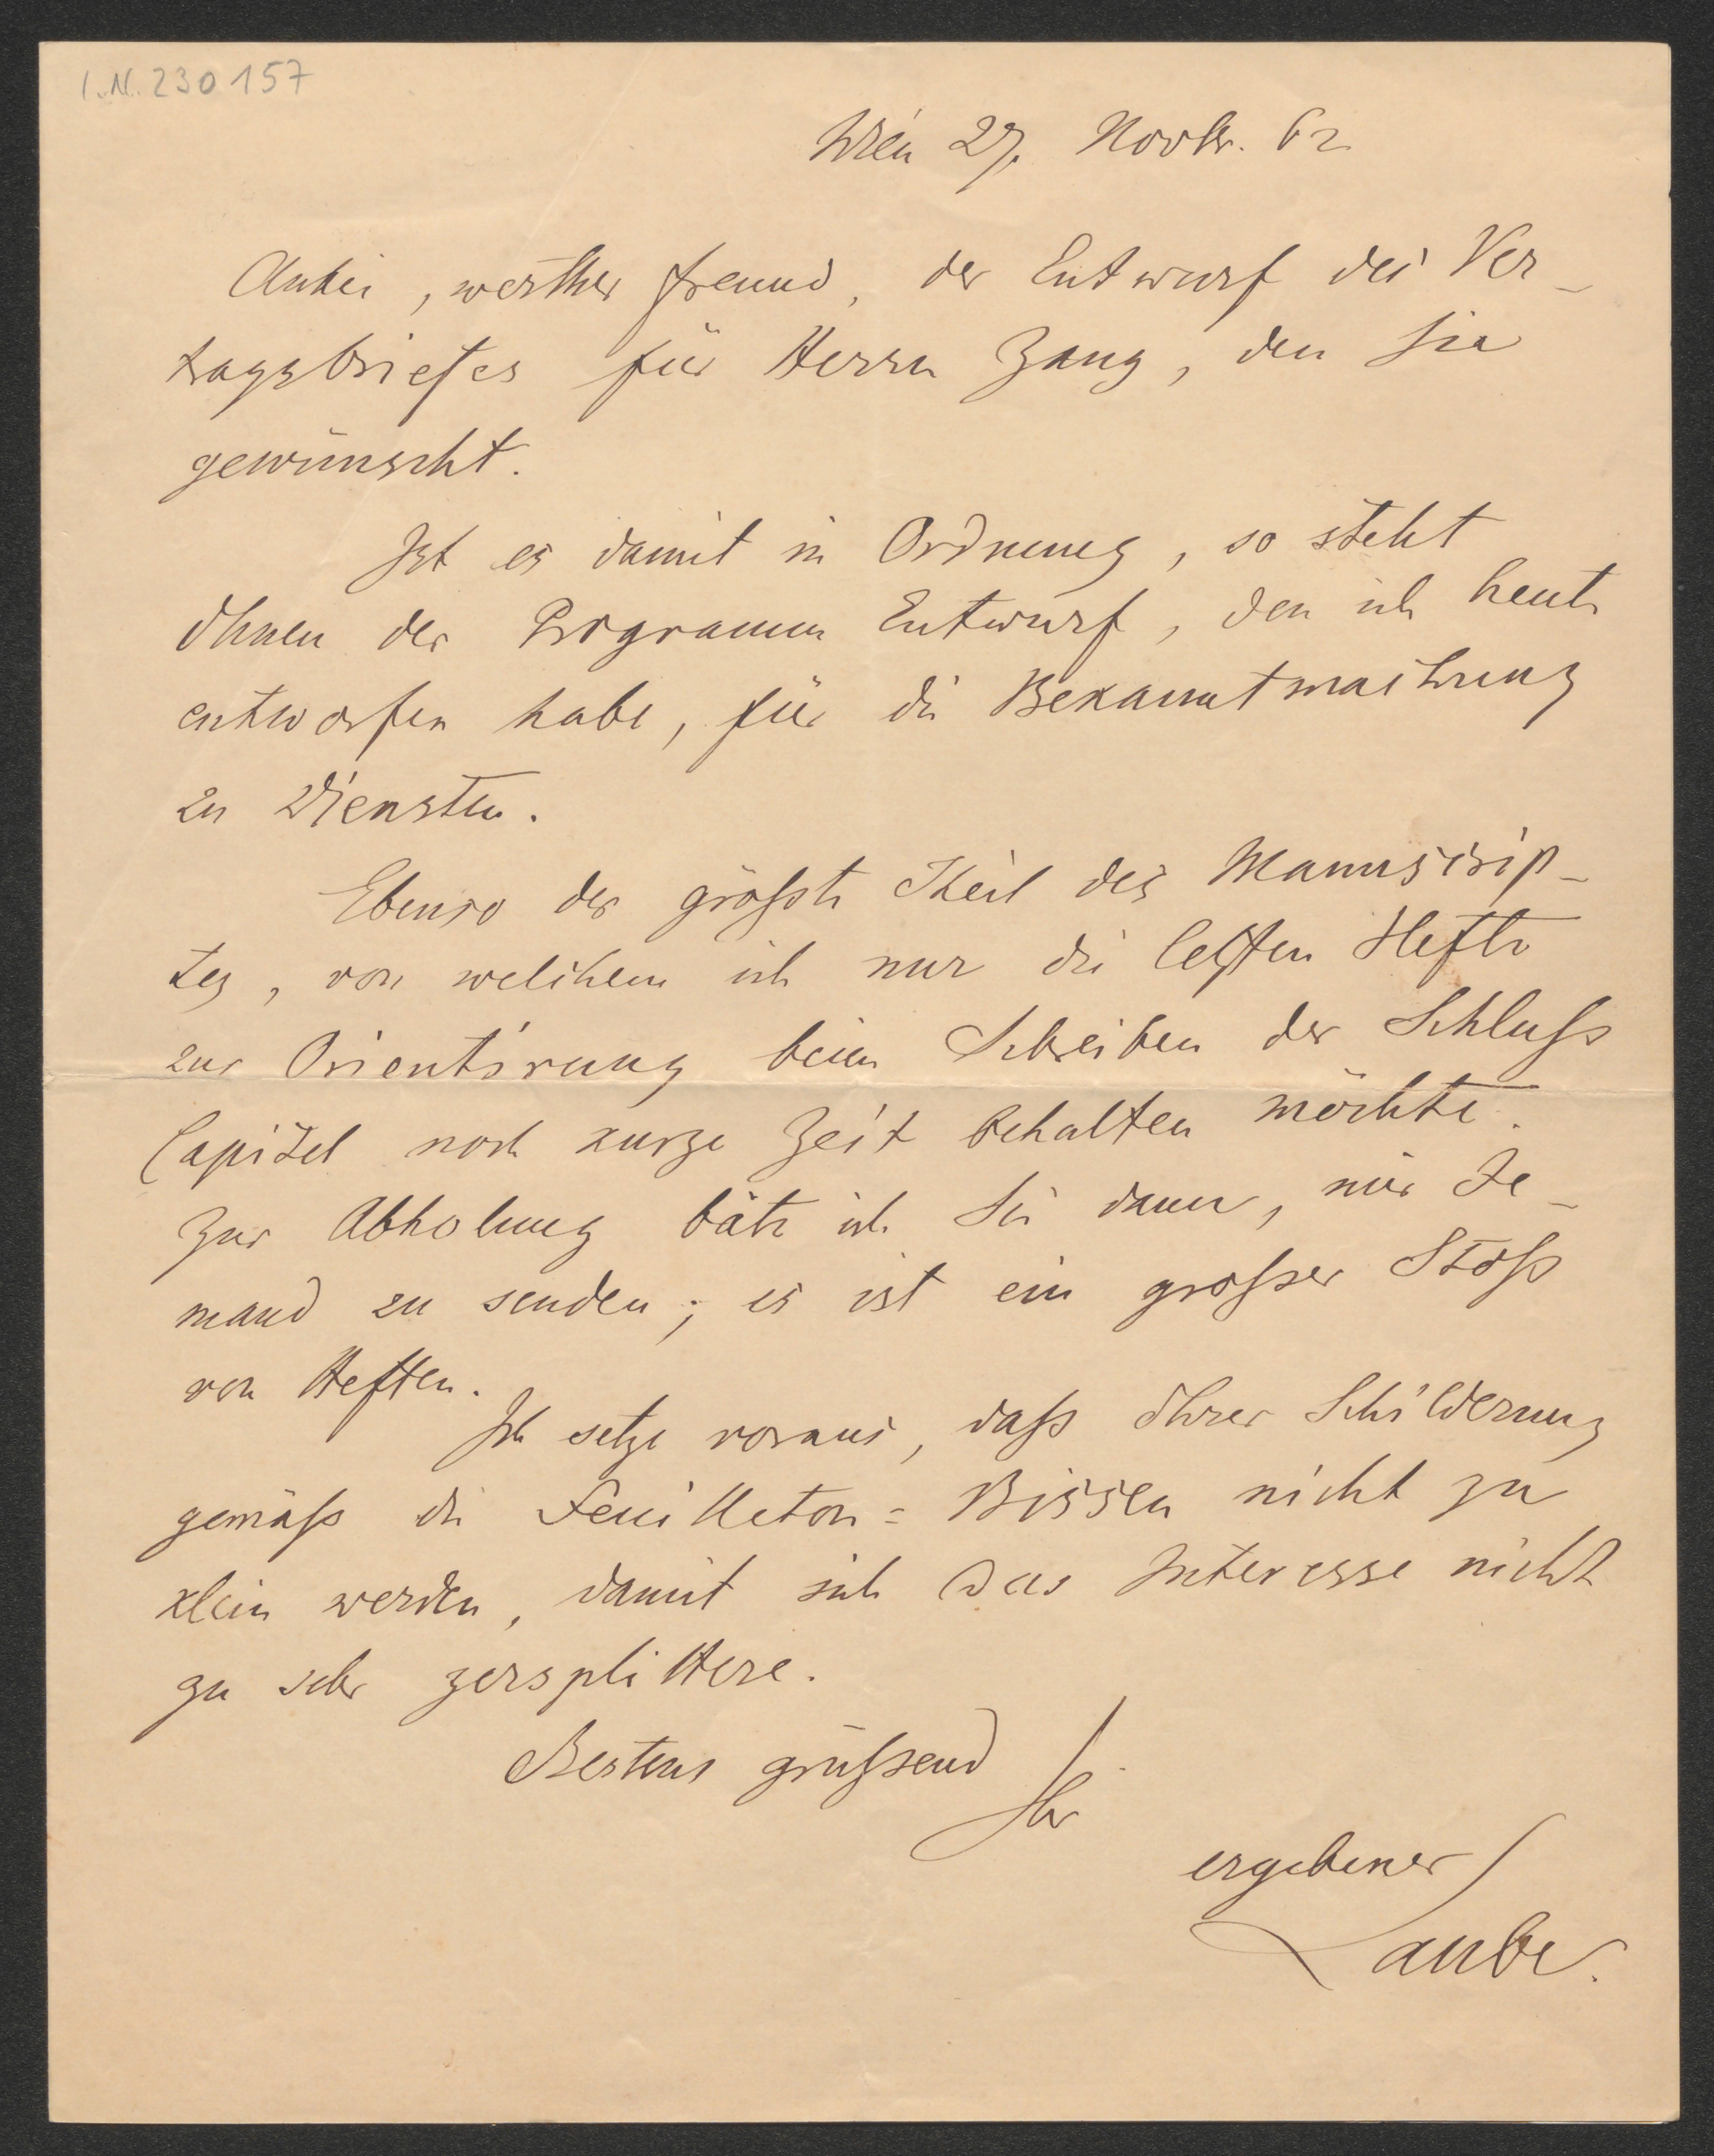 I.N. 230157
Wien 27. Novbr. 62
Anbei, werther Freund, der Entwurf des Ver-
tragsbriefes für Herrn Zang, den Sie
gewünscht.
Ist es damit in Ordnung, so steht
Ihnen der Programm Entwurf, den ich heute
entworfen habe, für die Bekanntmachung
zu Diensten.
Ebenso der größte Theil des Manuscrip-
tes, von welchem ich nur die letzten Hefte
zur Orientirung beim Schreiben der Schluß
Capitel noch kurze Zeit behalten möchte.
Zur Abholung bäte ich Sie dann, mir Je-
mand zu senden; es ist ein großer Stoß
von Heften.
Ich setze voraus, daß Ihrer Schilderung
gemäß die Feuilleton=Bissen nicht zu
klein werden, damit sich das Interesse nicht
zu sehr zersplittere.
Bestens grüßend
Ihr
ergebener
Laube.